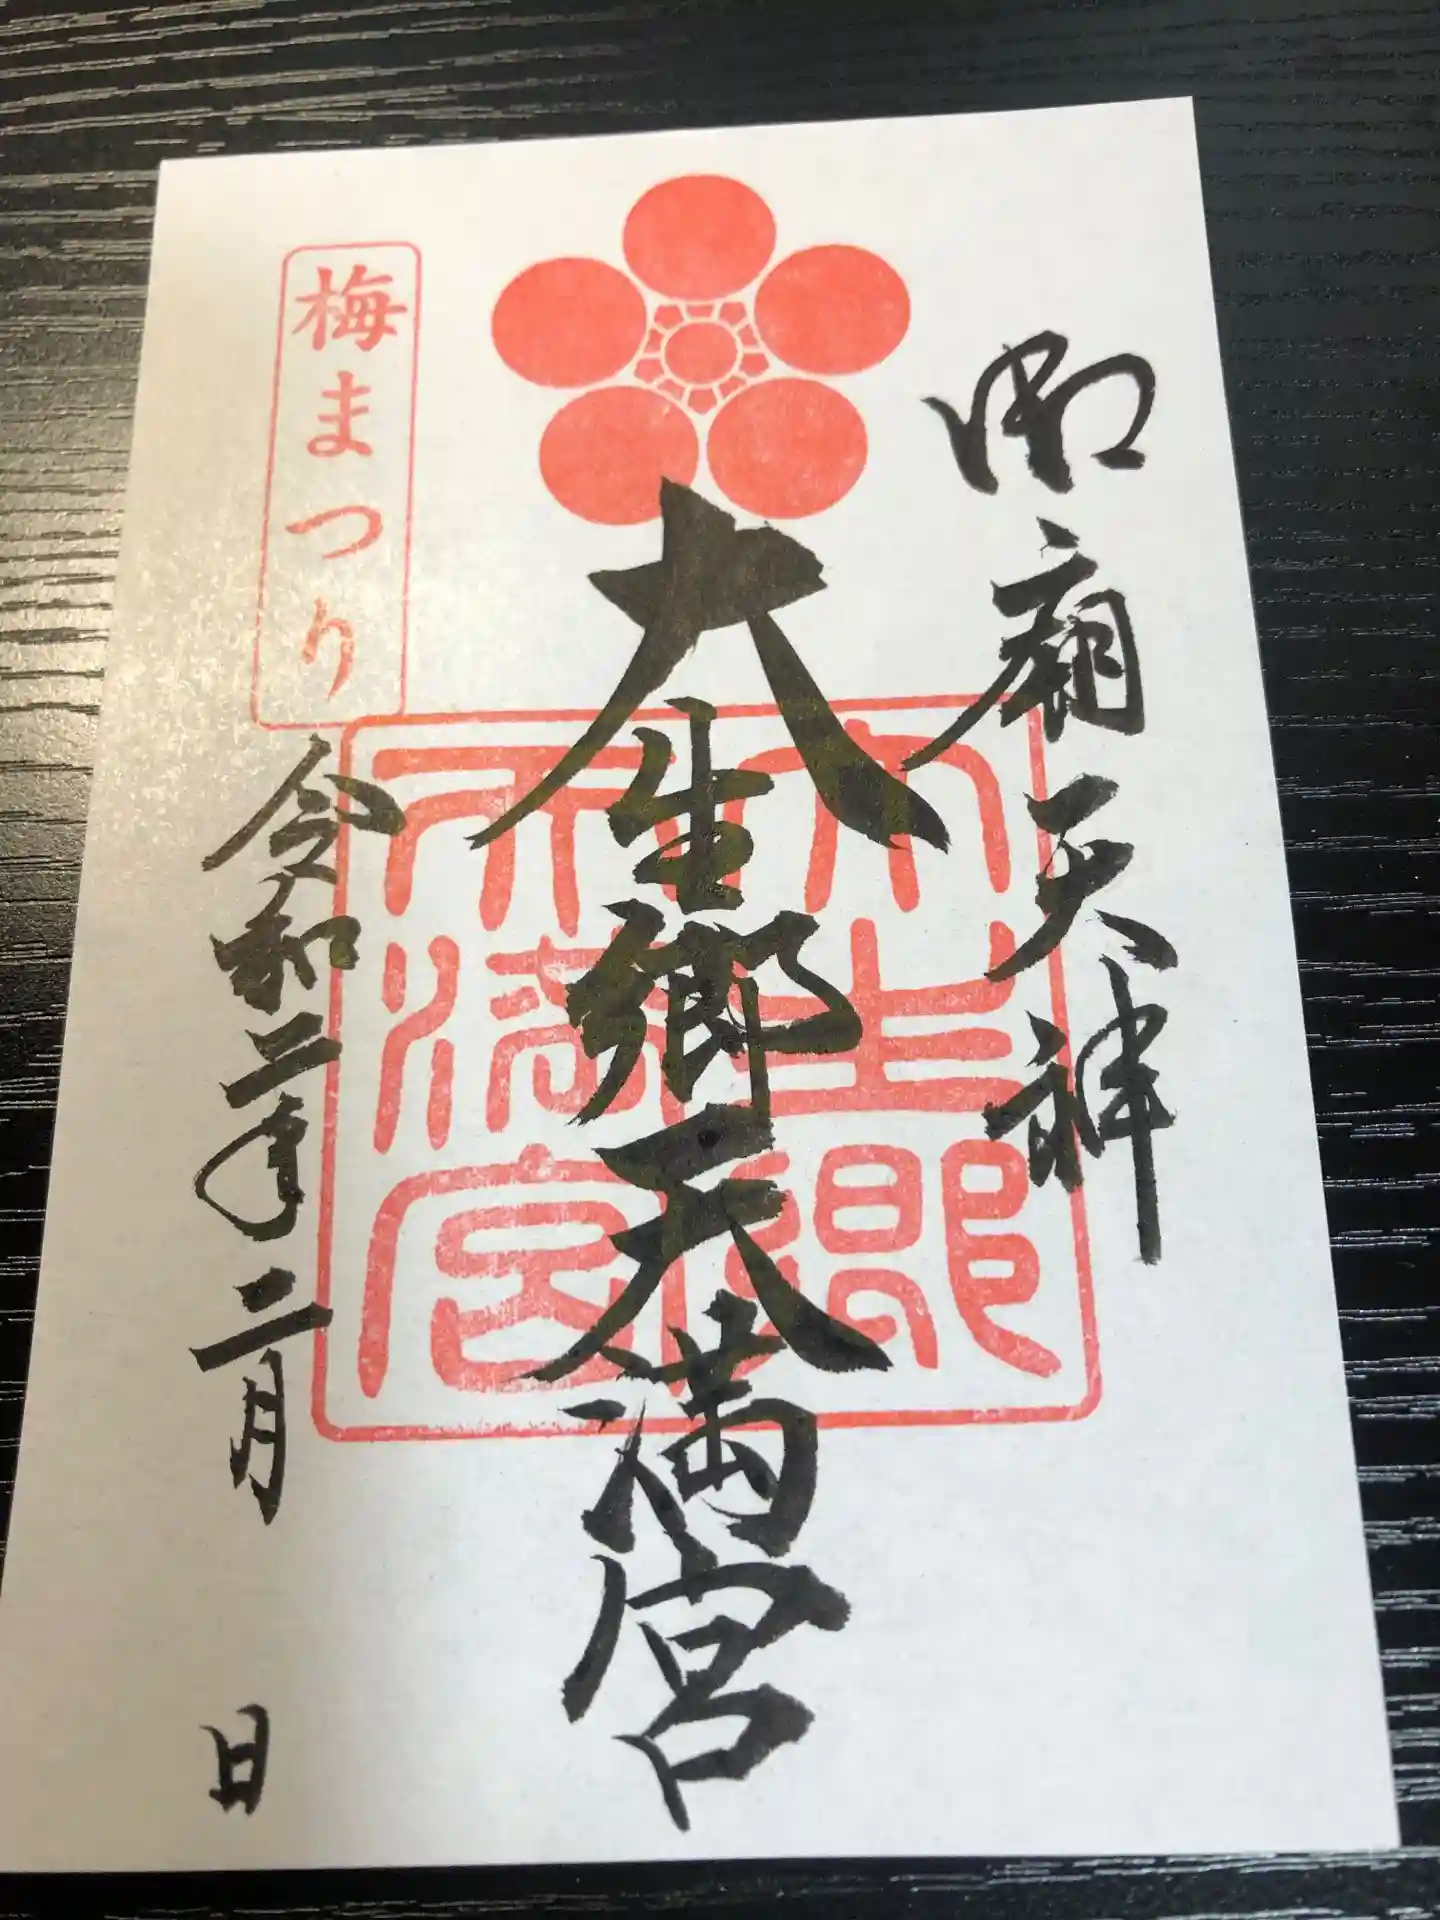 御廟天神
大生郷天満宮
大生郷
天満宮
梅まつり
令和二年二月
日